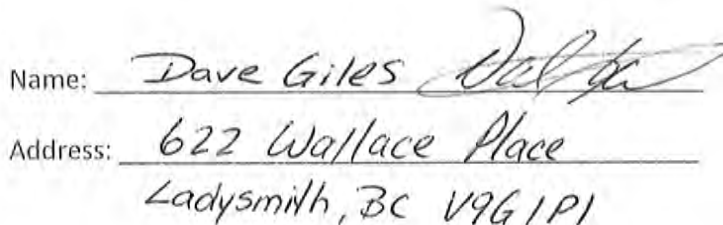 Name: Dave Giles
Address: 622 Wallace Place
Ladysmith, BC V9G 1P1